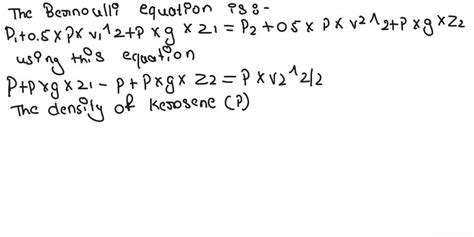 The Bernoulli equation is:-
P1+0.5×P×v1^2+P×g×z1=P2+0.5×P×v2^2+P×g×z2
using this equation
P+P×g×z1-P+P×g×z2=P×v2^2/2
The density of kerosene (P)